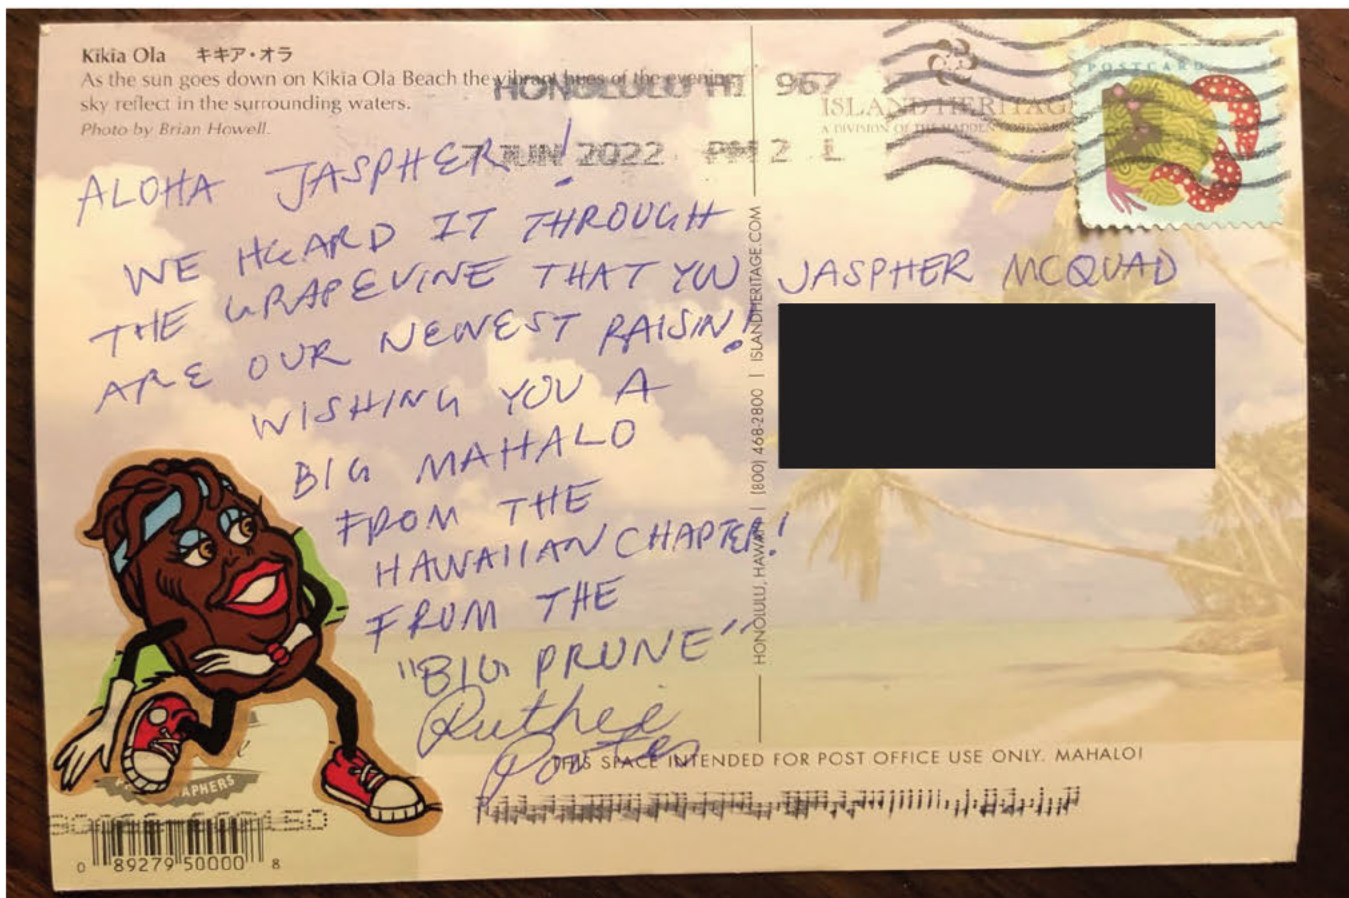 Kikia Ola キキア・オラ
As the sun goes down on Kikia Ola Beach the vibrant hues of the evening
sky reflect in the surrounding waters.
Photo by Brian Howell.
HONOLULU HI 967
7 JUN 2022 PM 2 L
ISLAND HERITAGE
A DIVISION OF THE MADDEN
POSTCARD
ALOHA JASPHER!
WE HEARD IT THROUGH
THE GRAPEVINE THAT YOU
ARE OUR NEWEST RAISIN!
WISHING YOU A
BIG MAHALO
FROM THE
HAWAIIAN CHAPTER!
FROM THE
"BIG PRUNE"
Ruthie
JASPHER MCQUAD
HONOLULU, HAWAII | (800) 468-2800 | ISLANDHERITAGE.COM
THIS SPACE INTENDED FOR POST OFFICE USE ONLY. MAHALO!
0 89279 50000 8